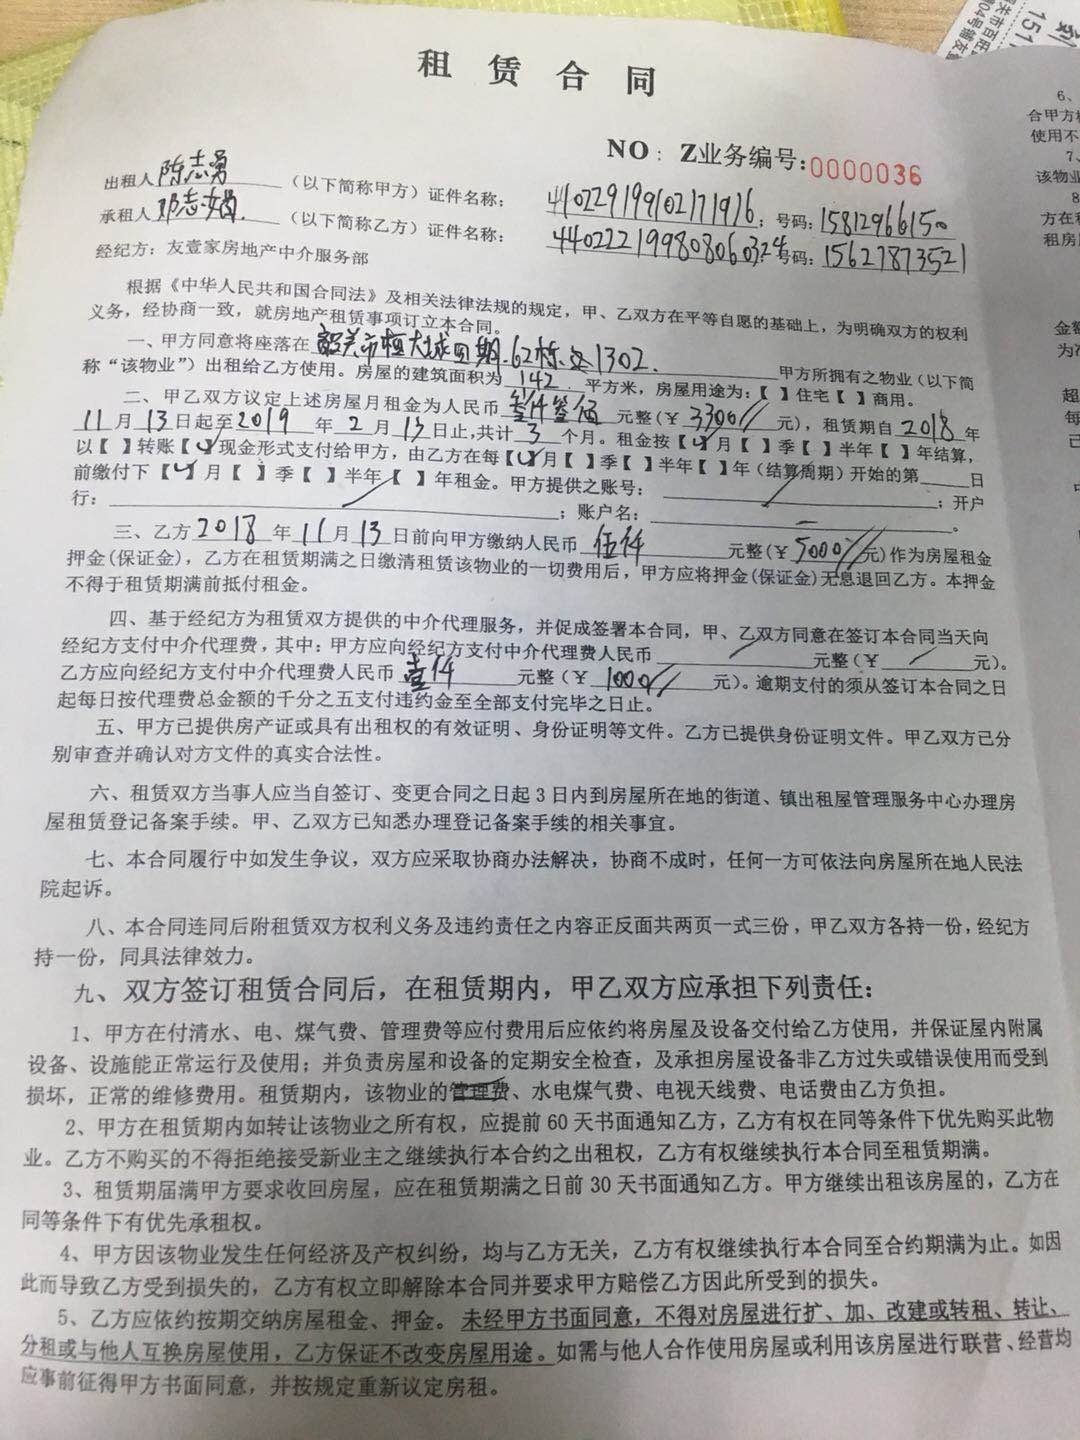 租赁合同
NO：Z业务编号：0000036
出租人陈志勇（以下简称甲方）证件名称：440229199102171916；号码：15812966150
承租人邓志（以下简称乙方）证件名称：440222199808060324号码：15627873521
经纪方：友壹家房地产中介服务部
根据《中华人民共和国合同法》及相关法律法规的规定，甲、乙双方在平等自愿的基础上，为明确双方的权利
义务，经协商一致，就房地产租赁事项订立本合同。
一、甲方同意将座落在韶关市恒大城四期.62栋1302.甲方所拥有之物业（以下简
称“该物业”）出租给乙方使用。房屋的建筑面积为142.平方米，房屋用途为：【 】住宅【 】商用。
二、甲乙双方议定上述房屋月租金为人民币叁仟叁佰元整（￥3300//元），租赁期自2018年
11月13日起至2019年2月13日止，共计3个月。租金按【✓】月【 】季【 】半年【 】年结算，
以【 】转账【✓】现金形式支付给甲方，由乙方在每【✓】月【 】季【 】半年【 】年（结算周期）开始的第____日
前缴付下【✓】月【 】季【 】半年【 】年租金。甲方提供之账号：；开户
行：；账户名：。
三、乙方2018年11月13日前向甲方缴纳人民币伍仟元整（￥5000//元）作为房屋租金
押金(保证金)，乙方在租赁期满之日缴清租赁该物业的一切费用后，甲方应将押金(保证金)无息退回乙方。本押金
不得于租赁期满前抵付租金。
四、基于经纪方为租赁双方提供的中介代理服务，并促成签署本合同，甲、乙双方同意在签订本合同当天向
经纪方支付中介代理费，其中：甲方应向经纪方支付中介代理费人民币元整（￥元）。
乙方应向经纪方支付中介代理费人民币壹仟元整（￥1000//元）。逾期支付的须从签订本合同之日
起每日按代理费总金额的千分之五支付违约金至全部支付完毕之日止。
五、甲方已提供房产证或具有出租权的有效证明、身份证明等文件。乙方已提供身份证明文件。甲乙双方已分
别审查并确认对方文件的真实合法性。
六、租赁双方当事人应当自签订、变更合同之日起3日内到房屋所在地的街道、镇出租屋管理服务中心办理房
屋租赁登记备案手续。甲、乙双方已知悉办理登记备案手续的相关事宜。
七、本合同履行中如发生争议，双方应采取协商办法解决，协商不成时，任何一方可依法向房屋所在地人民法
院起诉。
八、本合同连同后附租赁双方权利义务及违约责任之内容正反面共两页一式三份，甲乙双方各持一份，经纪方
持一份，同具法律效力。
九、双方签订租赁合同后，在租赁期内，甲乙双方应承担下列责任：
1、甲方在付清水、电、煤气费、管理费等应付费用后应依约将房屋及设备交付给乙方使用，并保证屋内附属
设备、设施能正常运行及使用；并负责房屋和设备的定期安全检查，及承担房屋设备非乙方过失或错误使用而受到
损坏，正常的维修费用。租赁期内，该物业的管理费、水电煤气费、电视天线费、电话费由乙方负担。
2、甲方在租赁期内如转让该物业之所有权，应提前60天书面通知乙方，乙方有权在同等条件下优先购买此物
业。乙方不购买的不得拒绝接受新业主之继续执行本合约之出租权，乙方有权继续执行本合同至租赁期满。
3、租赁期届满甲方要求收回房屋，应在租赁期满之日前30天书面通知乙方。甲方继续出租该房屋的，乙方在
同等条件下有优先承租权。
4、甲方因该物业发生任何经济及产权纠纷，均与乙方无关，乙方有权继续执行本合同至合约期满为止。如因
此而导致乙方受到损失的，乙方有权立即解除本合同并要求甲方赔偿乙方因此所受到的损失。
5、乙方应依约按期交纳房屋租金、押金。未经甲方书面同意，不得对房屋进行扩、加、改建或转租、转让、
分租或与他人互换房屋使用，乙方保证不改变房屋用途。如需与他人合作使用房屋或利用该房屋进行联营、经营均
应事前征得甲方书面同意，并按规定重新议定房租。
6、
合甲方
使用不
7、
该物业
8
方在
租房
金额
为
超
每
已